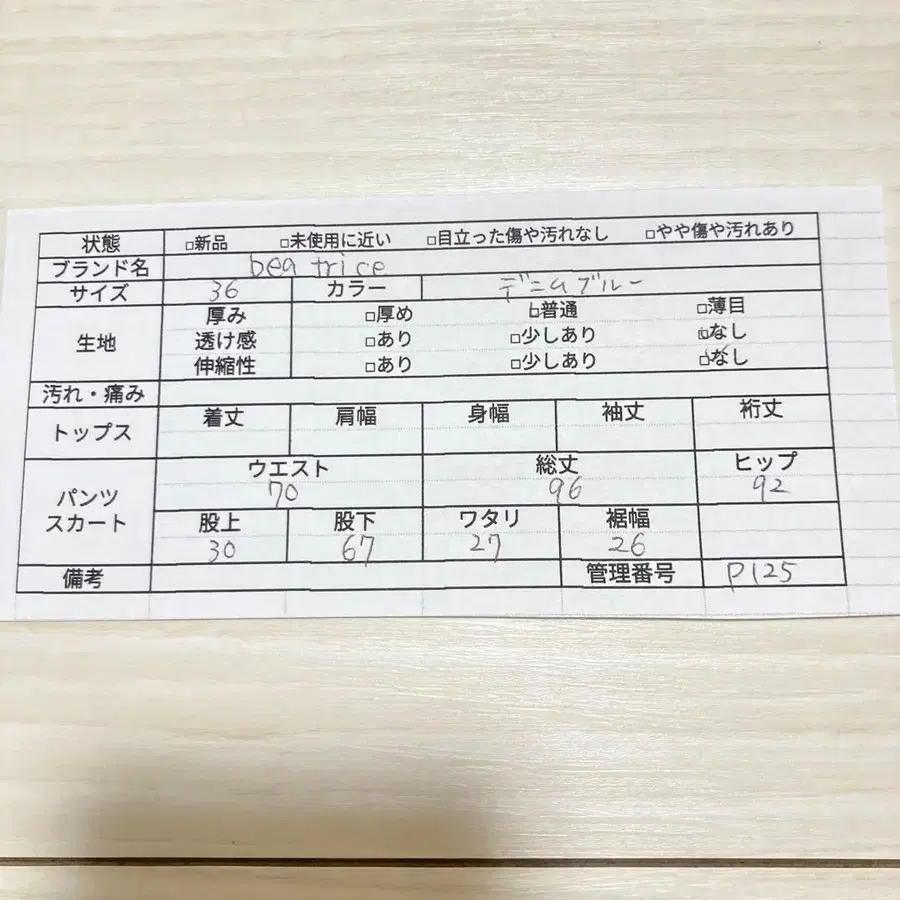 状態 □新品 □未使用に近い □目立った傷や汚れなし □やや傷や汚れあり
ブランド名 bea trice
サイズ 36 カラー デニムブルー
生地 厚み □厚め □普通 □薄目
透け感 □あり □少しあり □なし
伸縮性 □あり □少しあり □なし
汚れ・痛み
トップス 着丈 肩幅 身幅 袖丈 裄丈
パンツ スカート ウエスト 総丈 ヒップ
70 96 92
股上 股下 ワタリ 裾幅
30 67 27 26
備考 管理番号 P125